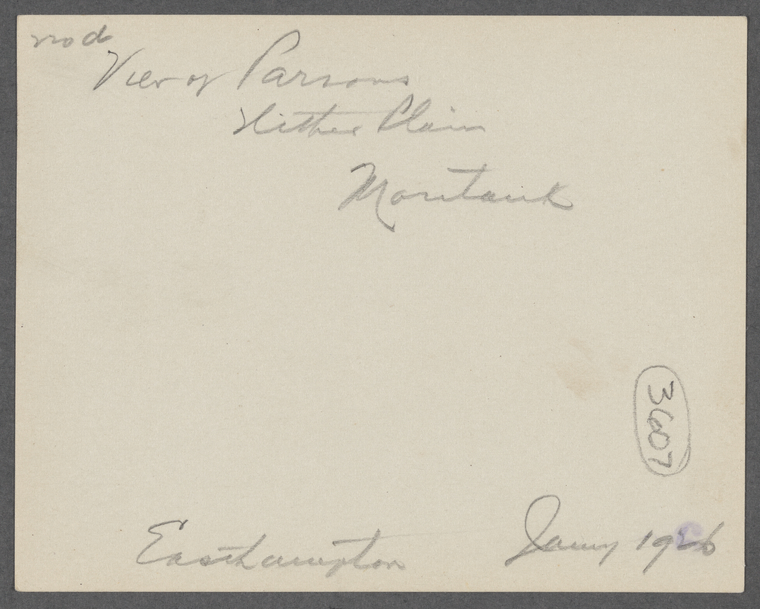 nod
View of Parsons
Hither Plain
Montauk
3607
Easthampton Jany 1926